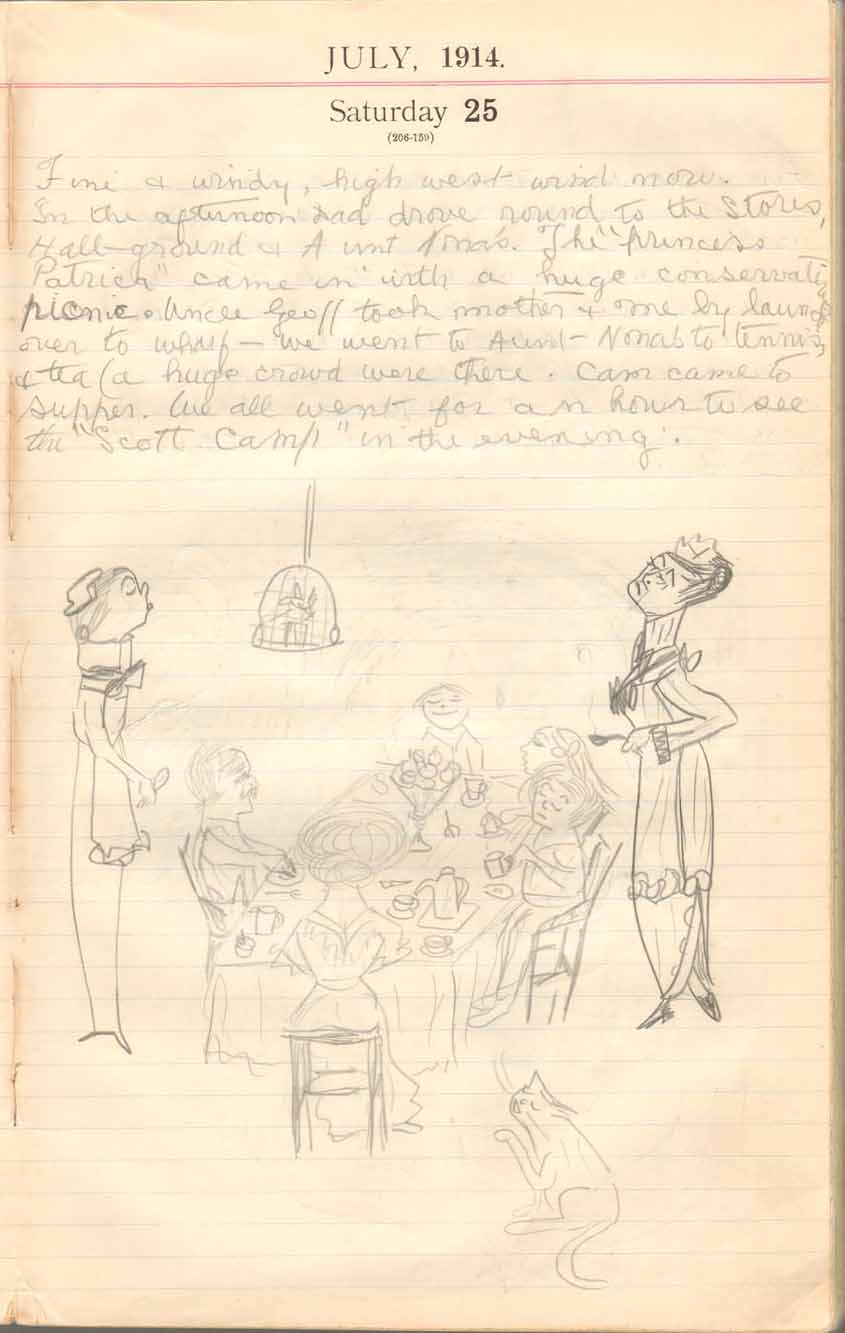 JULY, 1914.
Saturday 25
(206-159)
Fine & windy, high west wind now.
In the afternoon Dad drove round to the Stores,
Hall-ground & Aunt Nona's. The "Princess
Patricia" came in with a huge conservative
picnic. Uncle Geoff took mother & me by launch
over to wharf - we went to Aunt Nona's to tennis,
& tea (a huge crowd were there. Cam came to
supper. We all went for an hour to see
the "Scott Camp" in the evening.